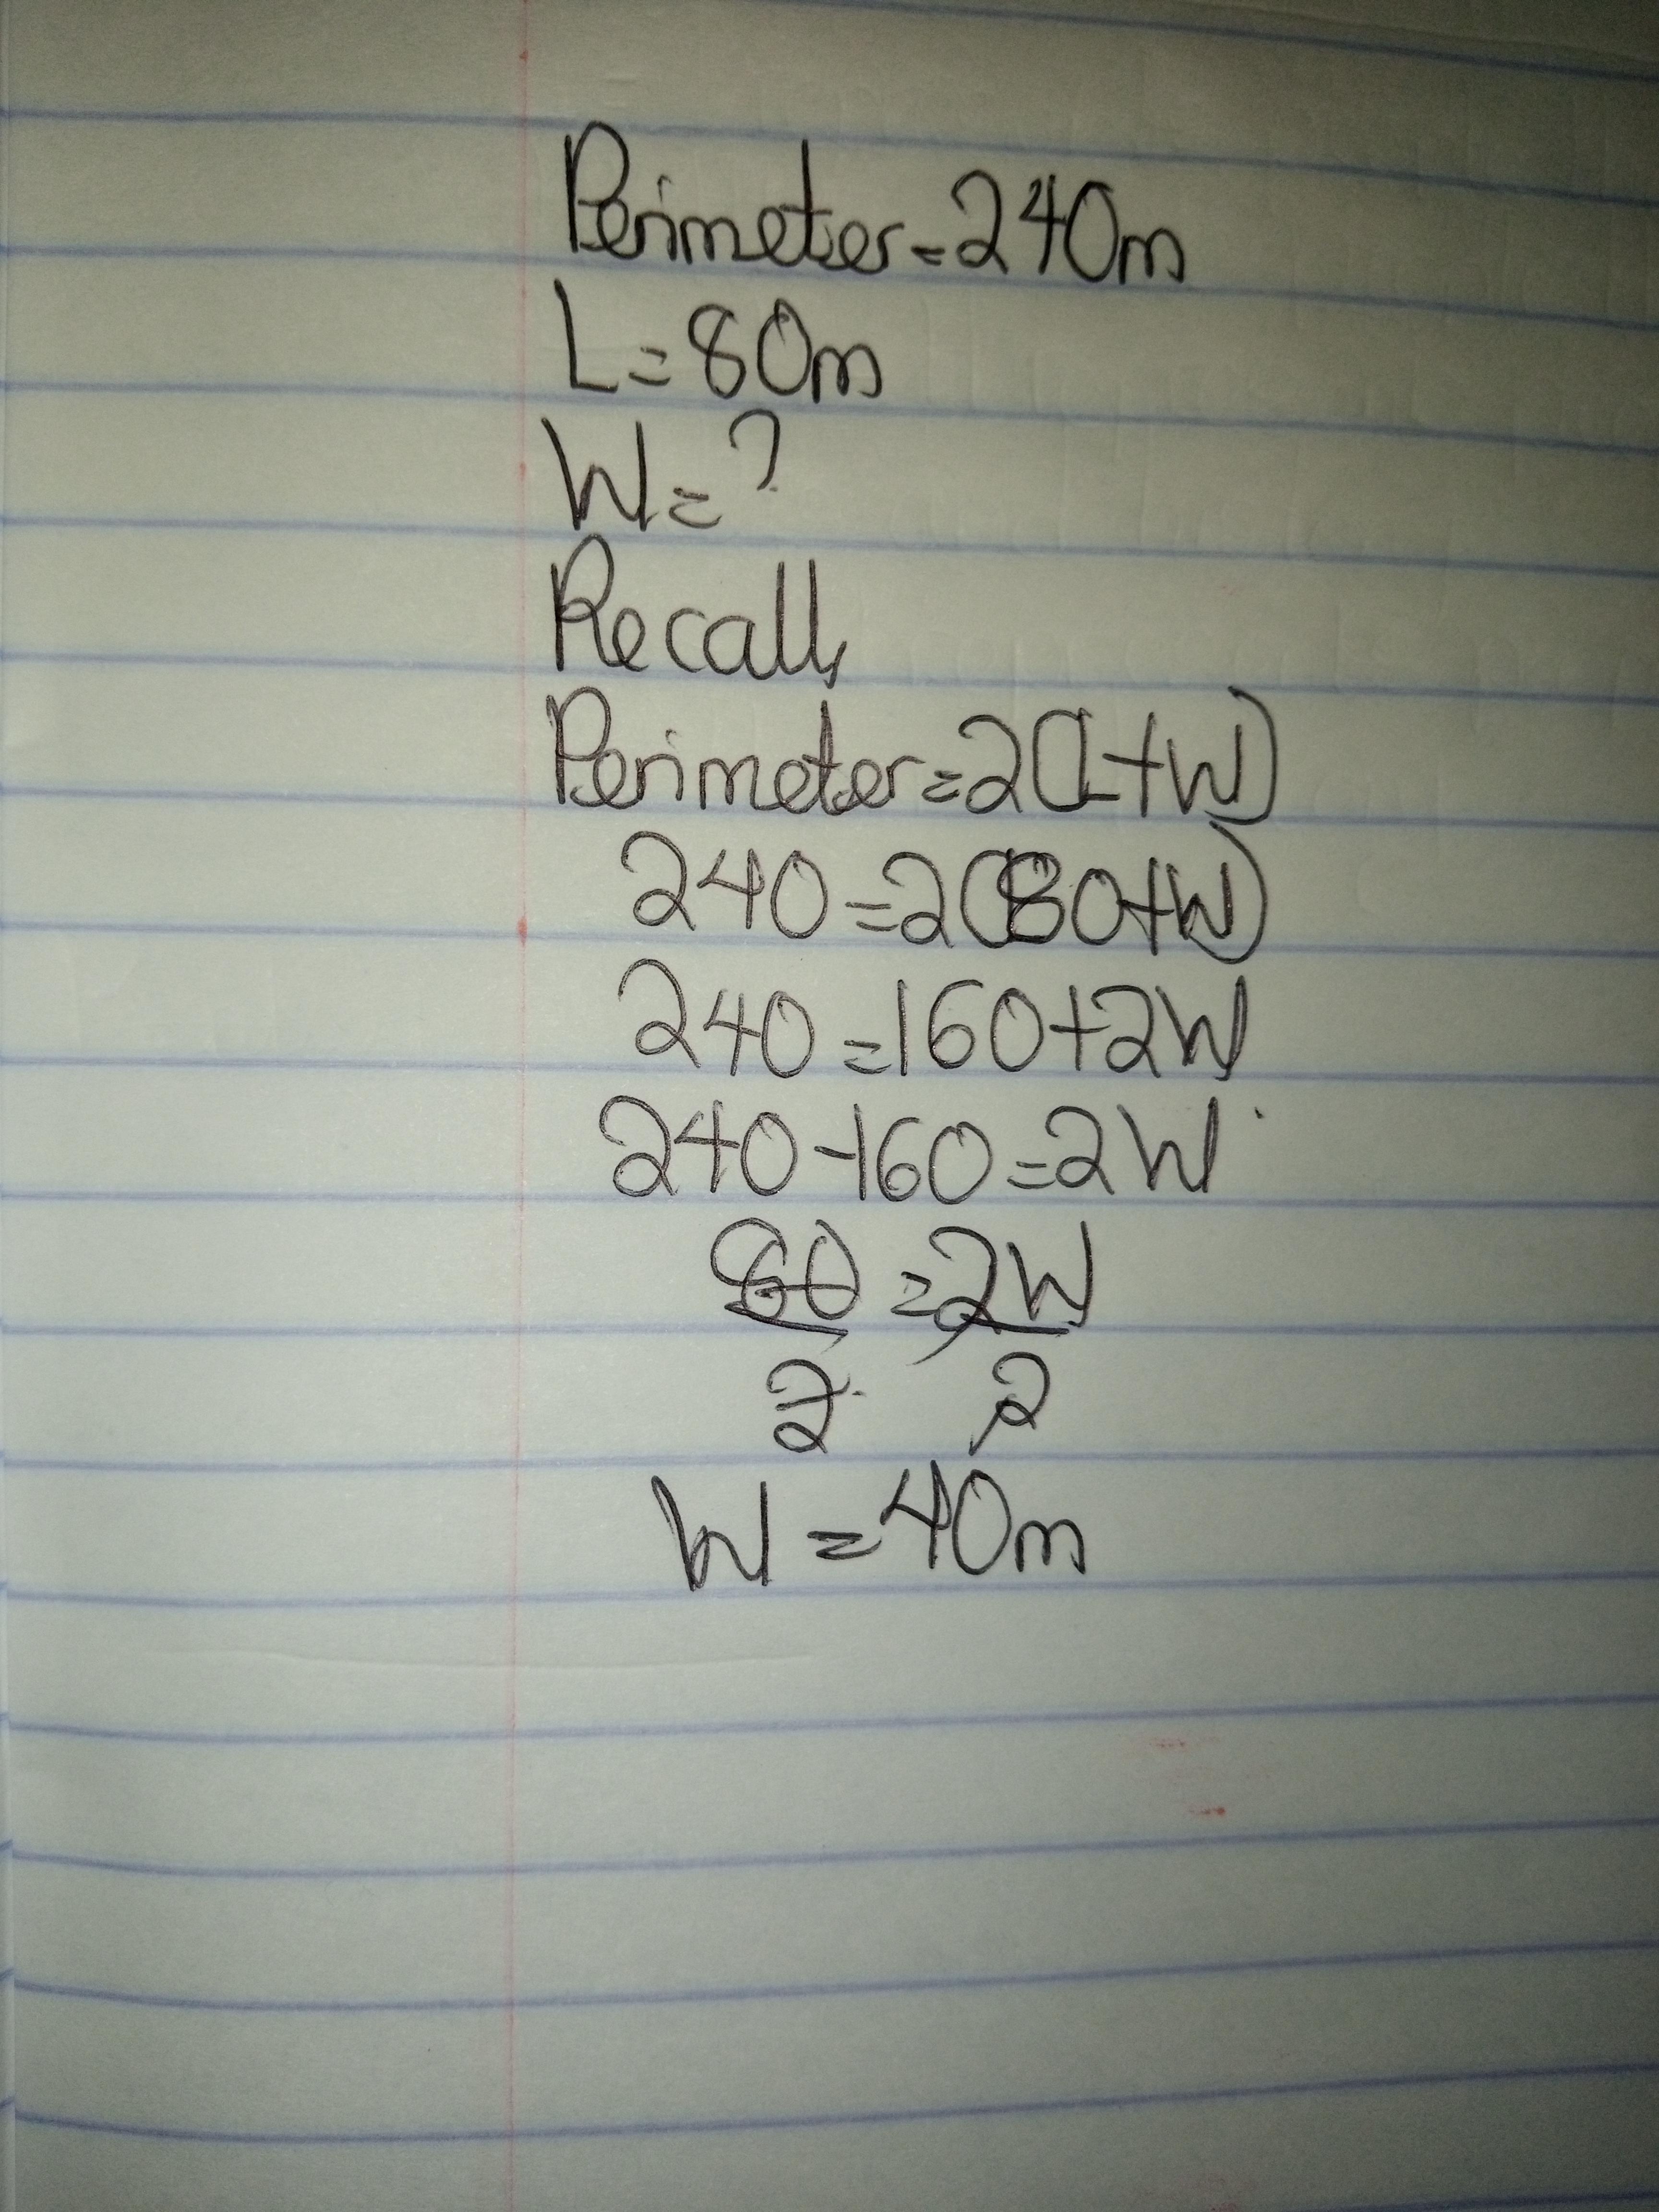 Perimeter=240m
L=80m
W=?
Recall,
Perimeter=2(L+W)
240=2(80+W)
240=160+2W
240-160=2W
80=2W
2 2
W=40m